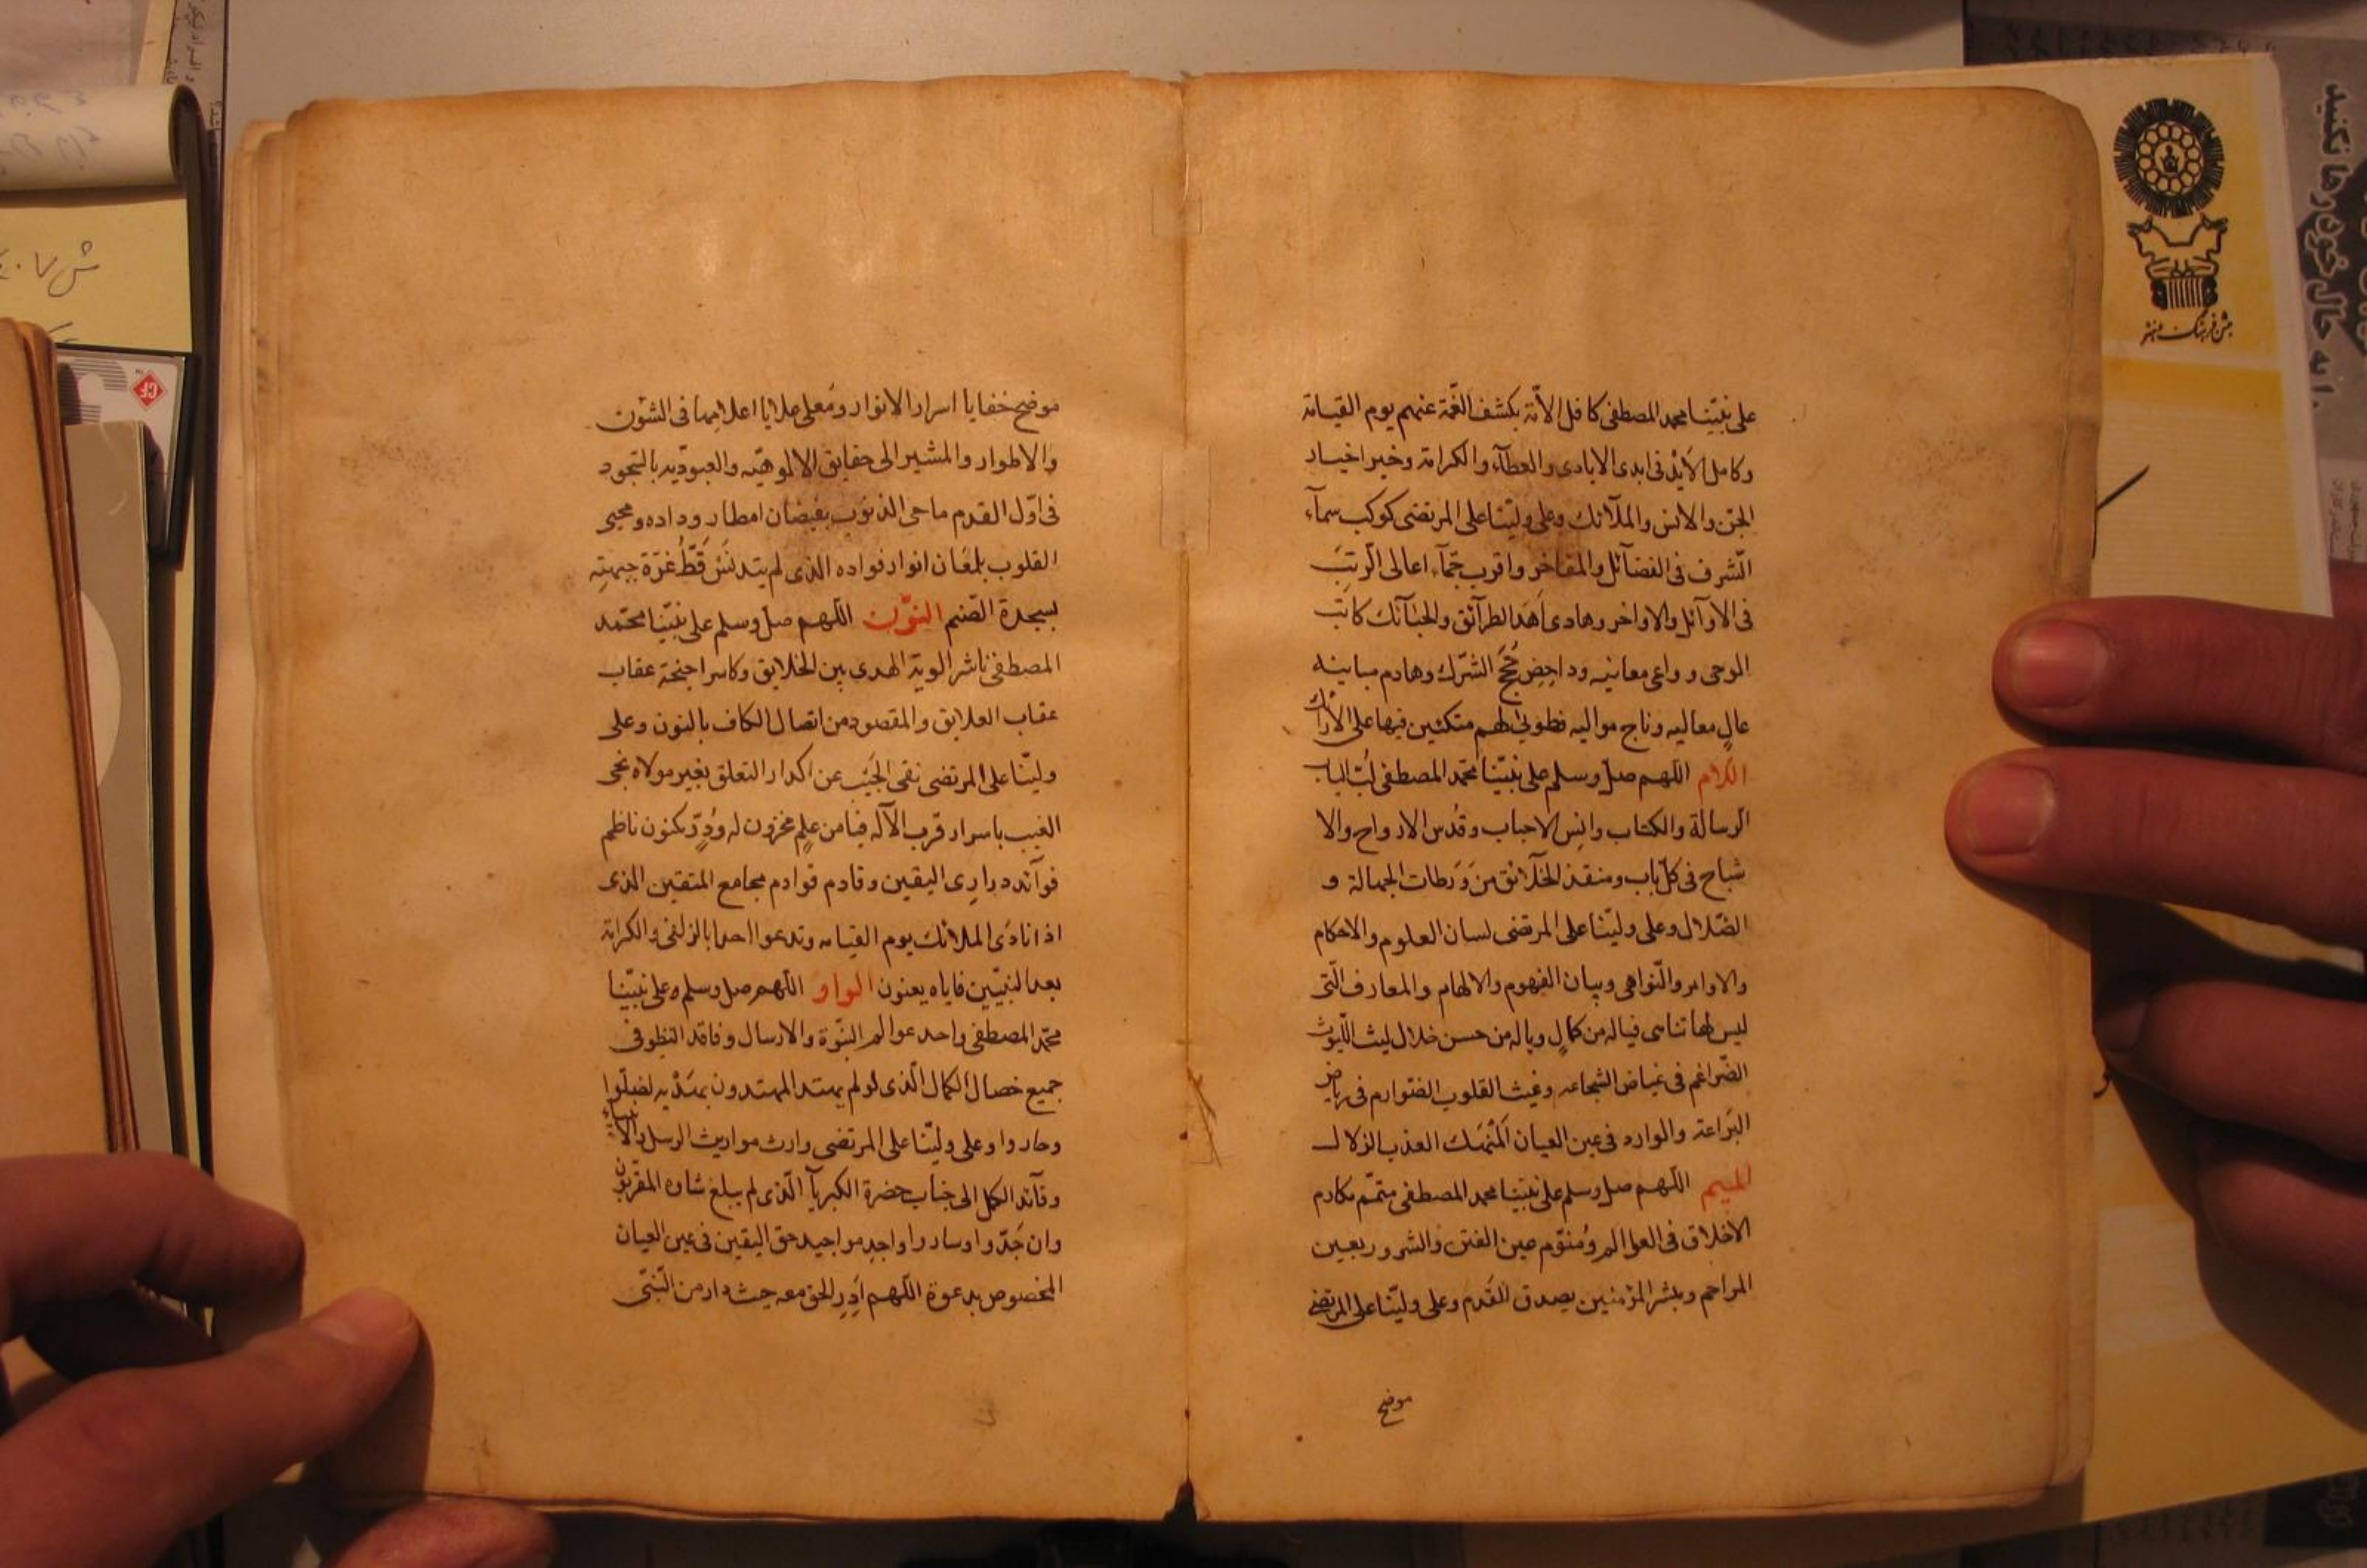 على نبيّنا محمد المصطفى كافل الأمّة بكشف الغمّة عنهم يوم القيامة
وكامل الأيد فى ابدى الايادى والعطآء والكرامة وخير اخيار
الجن والانس والملآئك وعلى وليّنا على المرتضى كوكب سمآء
الشرف فى الفضآئل والمفاخر واقرب حمآء اعالى الرتب
فى الاوآئل والاواخر وهادى اهدا لطرآئق والحبآئك كاتب
الوحى وواعى معانيه وداحض حُجَج الشرك وهادم مبانيه
عالٍ معاليه وناج مواليه فطوبى لهم متكئين فيها على الأرآئك
اللام اللهم صل وسلم على نبيّنا محمّد المصطفى لُبّ لباب
الرسالة والكتاب وانس الاحباب وقُدس الارواح والا
شباح فى كل باب ومنقذ الخلآئق من وَرَطات الجهالة و
الضّلال وعلى وليّنا على المرتضى لسان العلوم والاحكام
والاوامر والنّواهى وبيان الفهوم والالهام والمعارف الّتى
ليس لها تناهى فياله من كمالٍ وياله من حسن خلال ليث اللّيوث
الضّراغم فى غياض الشجاعه وغيث القلوب الضوارم فى رياض
البَراعة والوارد فى عين العيان المنهك العذب الزلال
الميم اللهم صل وسلم على نبيّنا محمد المصطفى متمّم مكارم
الاخلاق فى العوالم ومُنوّم عين الفتن والشرور بعين
المراحم ومبشر المؤمنين بصدق القَدم وعلى وليّنا على المرتضى
موضح
موضح خفايا اسرار الانوار ومعلى ملايا اعلامها فى الشئون
والاطوار والمشير الى حقايق الالوهيّه والعبوديّه بالسّجود
فى اوّل القدم ماحى الذنوب بفيضان امطار وداده ومحيى
القلوب بلمعان انوار فواده الذى لم يتدنّس قَطُّ غرّة جبهته
بسجدة الصّنم النّون اللهم صل وسلم على نبيّنا محمّد
المصطفى ناشر الوية الهدى بين الخلايق وكاسر اجنحة عقاب
عقاب العلايق والمقصود من اتصال الكاف بالنون وعلى
وليّنا على المرتضى نقى الجَيب عن اكدار التعلق بغير مولاه نجى
الغيب باسرار قرب الآله فيا من علمٍ مخزون له ودُرٍّ مكنون ناظم
فوآئد درارى اليقين وقادم قوادم مجامع المتقين الذى
اذا نادى الملائك يوم القيامه وتدعوا احدا بالزلفى والكرامة
بعد النبيّين فاياه يعنون الواو اللهم صل وسلم وعلى نبيّنا
محمّد المصطفى واحد عوالم النبّوة والارسال وفاقد النظر فى
جميع خصال الكمال الّذى لولم يهتد المهتدون بهَدْيه لضلّوا
وحاروا وعلى وليّنا على المرتضى وارث مواريث الرسل والأنبياء
وقآئد الكل الى جناب حضرة الكبريآ الّذى لم يبلغ شاوه المقرّبون
وان جَدّوا وساروا واجد مواجيد حق اليقين فى عين العيان
المخصوص بدعوة اللهم اَدِر الحق معه حيث دار من النّبىّ
جشن فرهنگ و هنر